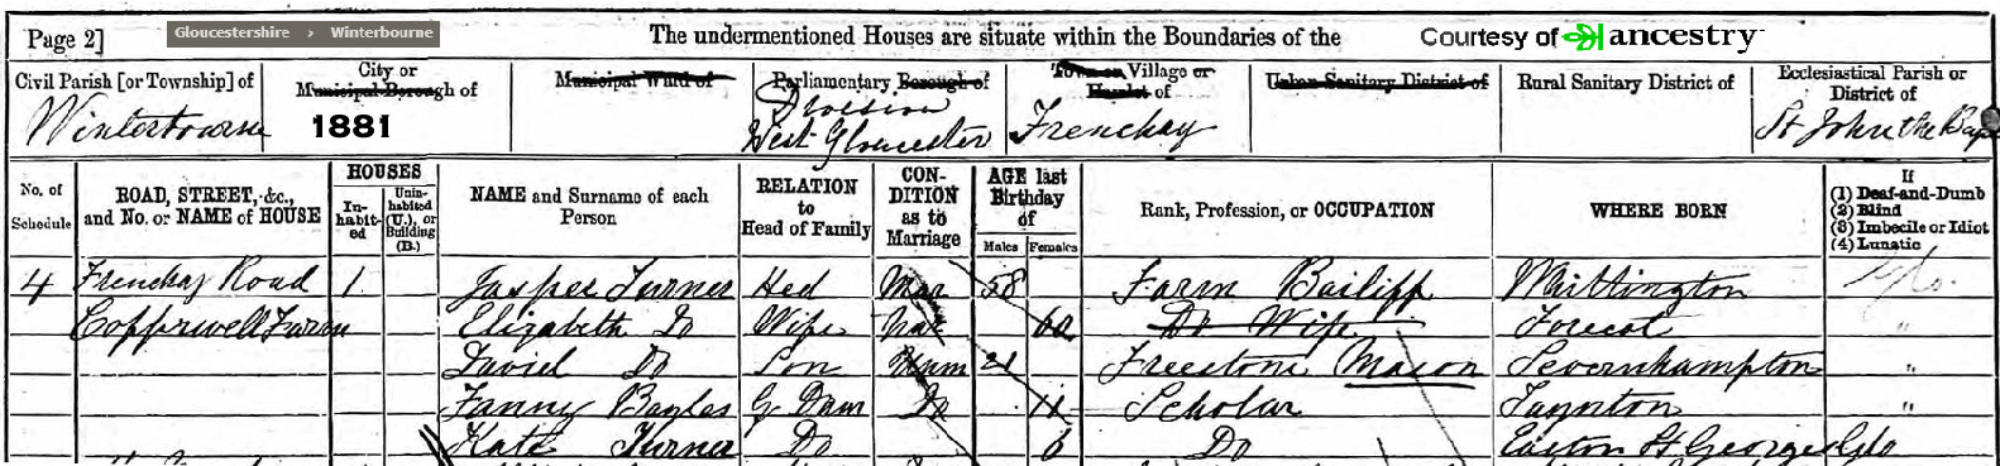 Page 2]
Gloucestershire › Winterbourne
The undermentioned Houses are situate within the Boundaries of the
Courtesy of ancestry
Civil Parish [or Township] of
City or Municipal Borough of
Municipal Ward of
Parliamentary Borough of
Town or Village or Hamlet of
Urban Sanitary District of
Rural Sanitary District of
Ecclesiastical Parish or District of
Winterbourne
1881
Division West Gloucester
Frenchay
St John the Bap
No. of Schedule
ROAD, STREET, &c., and No. or NAME of HOUSE
HOUSES
In-habit-ed
Unin-habited (U.), or Building (B.)
NAME and Surname of each Person
RELATION to Head of Family
CON-DITION as to Marriage
AGE last Birthday of
Males Females
Rank, Profession, or OCCUPATION
WHERE BORN
If
(1) Deaf-and-Dumb
(2) Blind
(3) Imbecile or Idiot
(4) Lunatic
4 Frenchay Road 1 Jasper Turner Hed Mar 58 Farm Bailiff Whittington Glo.
Elizabeth Do Wife Mar 60 Do Wife Forecot "
David Do Son Unm 21 Freestone Mason Severnhampton "
Fanny Bayles G Daur Do 11 Scholar Taynton "
Kate Turner Do 6 Do Easton St George Glo